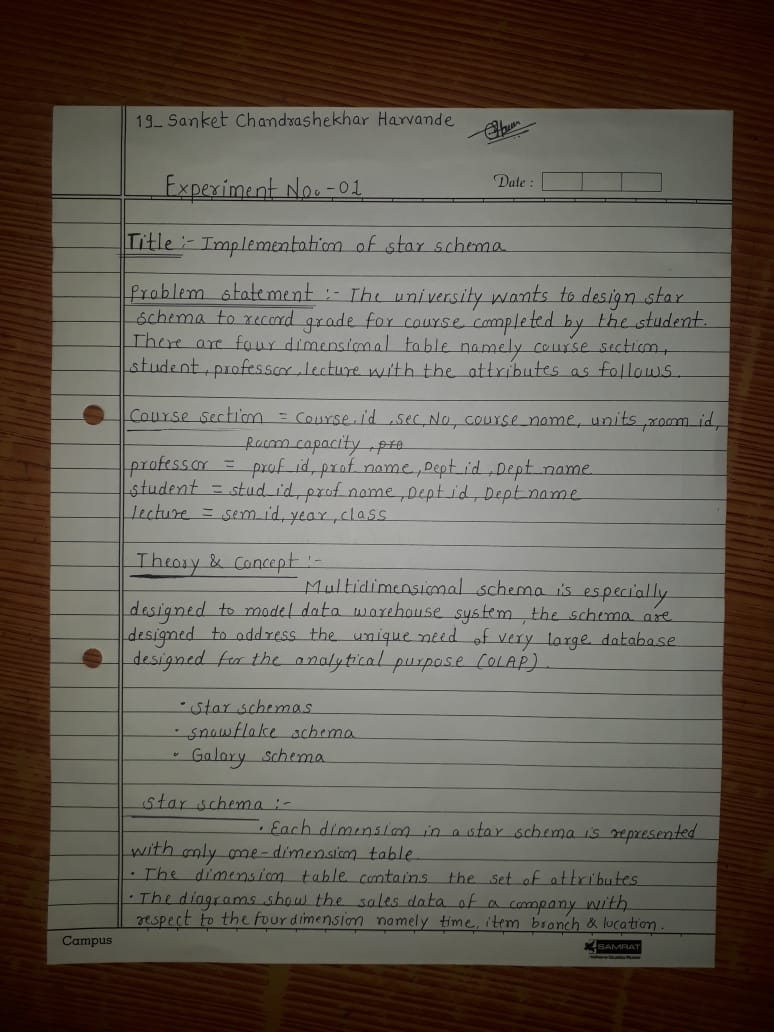 19_ Sanket Chandrashekhar Harvande
Experiment No. - 01
Date :
Title :- Implementation of star schema
Problem statement :- The university wants to design star
schema to record grade for course completed by the student.
There are four dimensional table namely course section,
student, professor, lecture with the attributes as follows.
Course section = Course.id, sec, No, course name, units, room id,
Room capacity, pro
professor = prof id, prof name, Dept id, Dept name
student = stud_id, prof name, Dept id, Dept name
lecture = sem id, year, class
Theory & Concept :-
Multidimensional schema is especially
designed to model data warehouse system, the schema are
designed to address the unique need of very large database
designed for the analytical purpose (OLAP).
• star schemas
• snowflake schema
• Galary schema
star schema :-
• Each dimension in a star schema is represented
with only one-dimension table.
• The dimension table contains the set of attributes
• The diagrams show the sales data of a company with
respect to the four dimension namely time, item branch & location.
Campus
SAMRAT